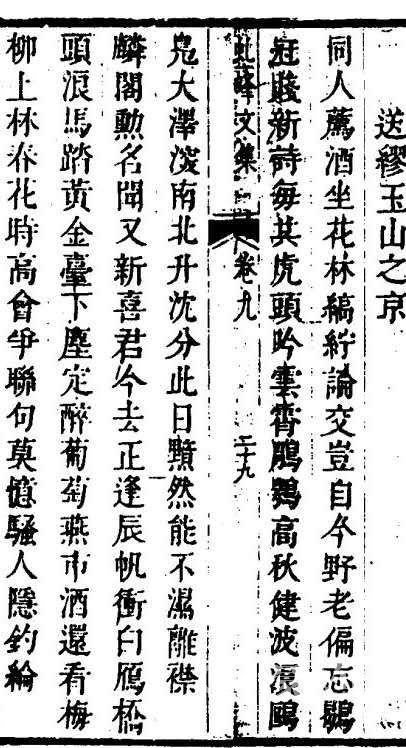 送繆玉山之京
同人薦酒坐花林縞紵論交豈自今野老偏忘鶡
冠賤新詩每共虎頭吟雲霄鵰鶚高秋健波浪鷗
虬峰文集 卷九 二十九
鳧大澤深南北升沈分此日黯然能不濕離襟
麟閣勳名聞又新喜君今去正逢辰帆衝白鴈橋
頭浪馬踏黃金臺下塵定醉葡萄燕市酒還看梅
柳上林春花時高會爭聯句莫憶騷人隱釣綸